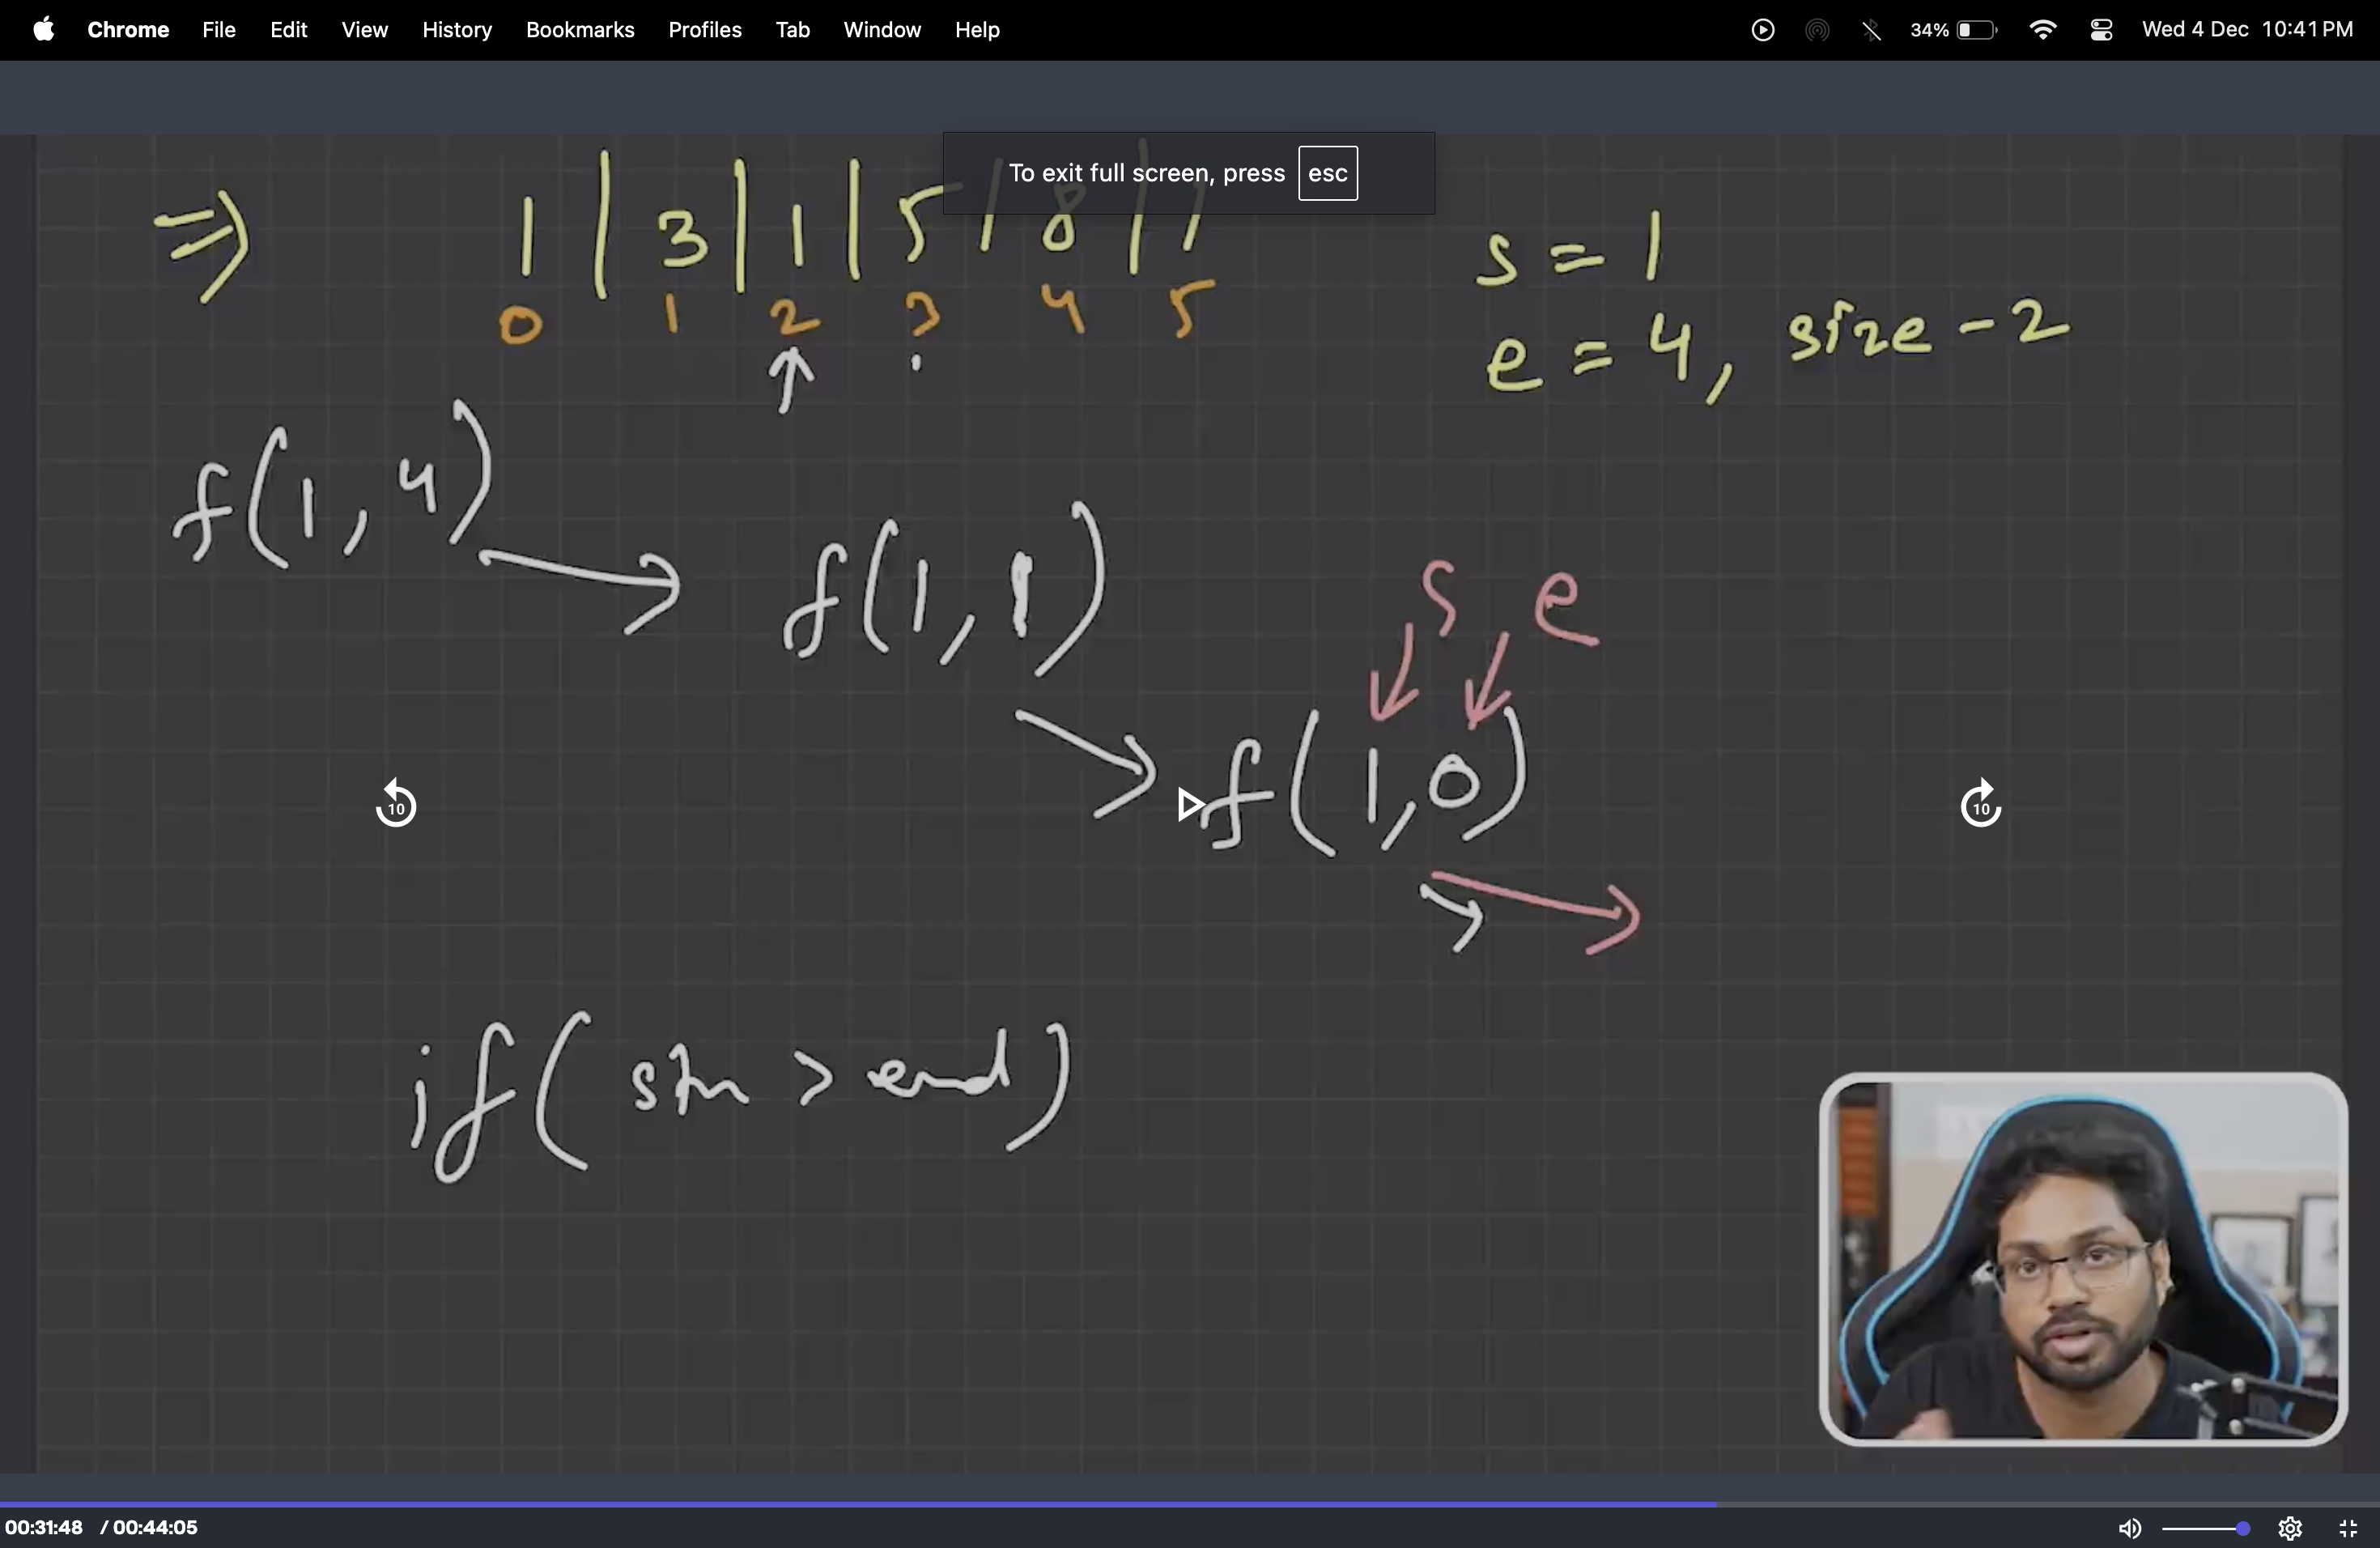 Chrome File Edit View History Bookmarks Profiles Tab Window Help 34% Wed 4 Dec 10:41 PM
To exit full screen, press esc
⇒ 1 | 3 | 1 | 5 | 8 | 1
0 1 2 3 4 5
s = 1
e = 4, size - 2
f(1, 4)
f(1, 1)
s e
f(1, 0)
10
10
if( > end)
00:31:48 / 00:44:05